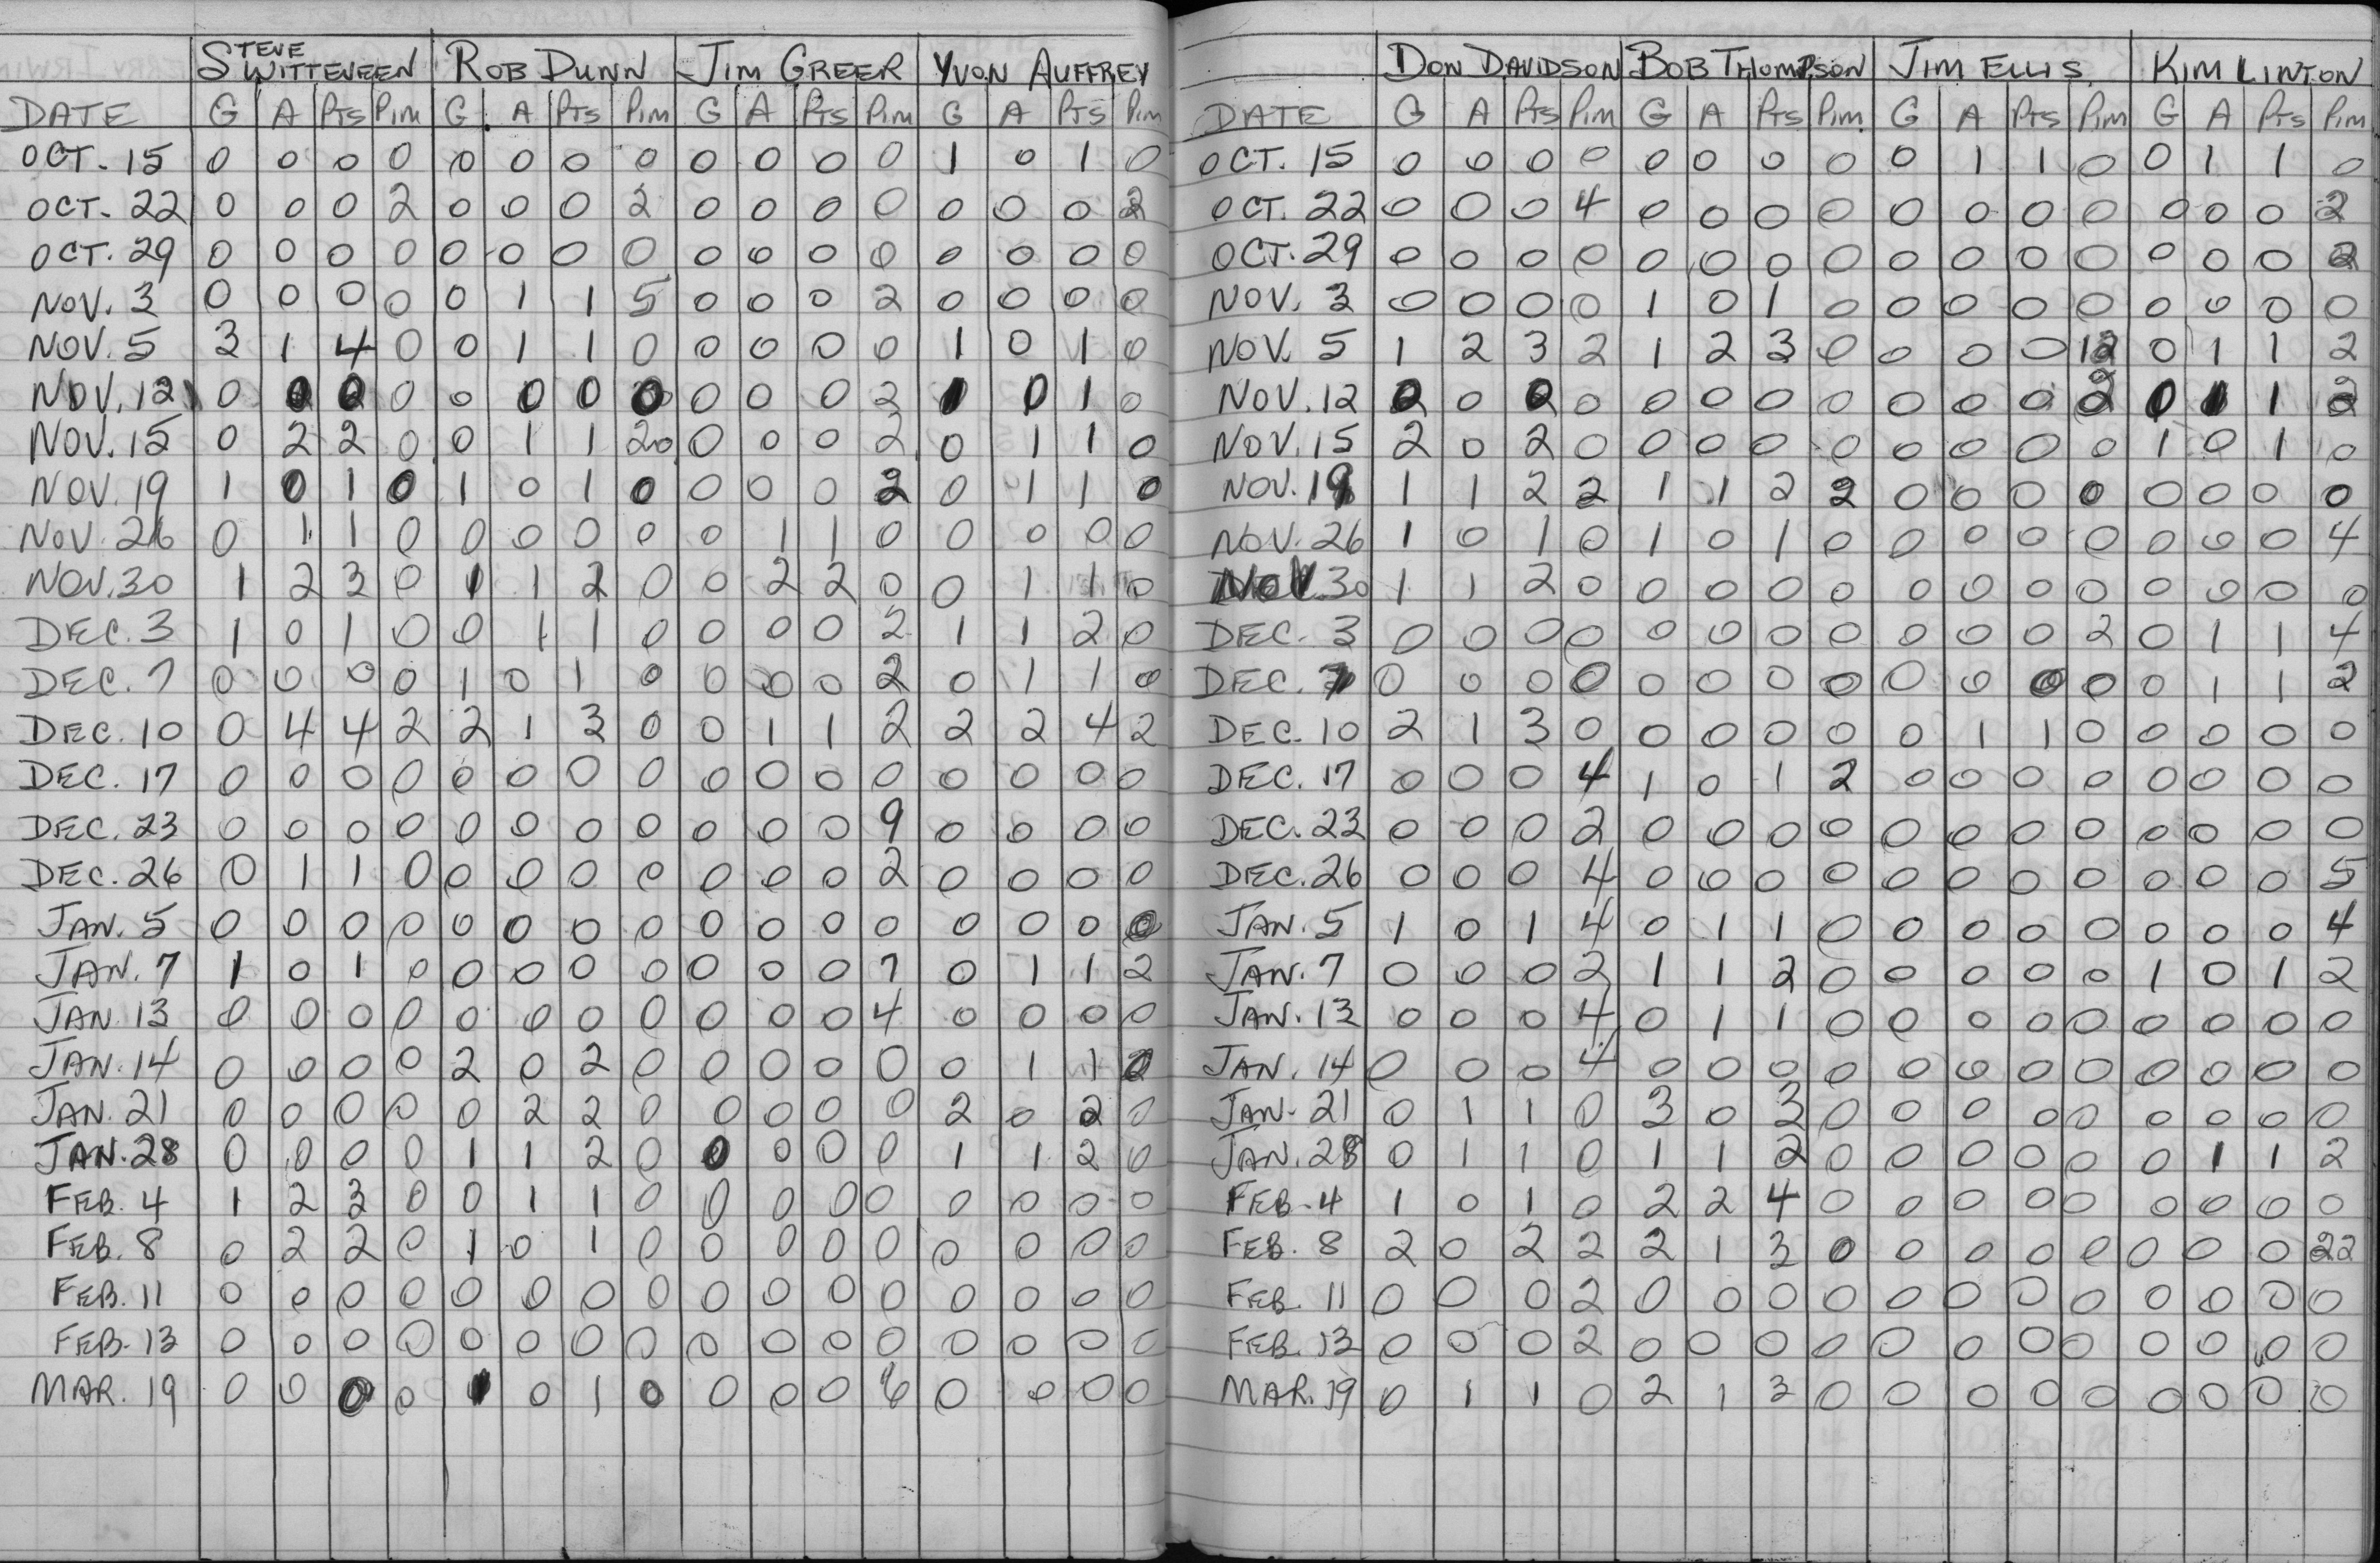 STEVE WITTEVEEN ROB DUNN JIM GREER YVON AUFFREY
DATE G A PTS PIM G A PTS PIM G A PTS PIM G A PTS PIM
OCT. 15 0 0 0 0 0 0 0 0 0 0 0 0 1 0 1 0
OCT. 22 0 0 0 2 0 0 0 2 0 0 0 0 0 0 0 2
OCT. 29 0 0 0 0 0 0 0 0 0 0 0 0 0 0 0 0
NOV. 3 0 0 0 0 0 1 1 5 0 0 0 2 0 0 0 0
NOV. 5 3 1 4 0 0 1 1 0 0 0 0 0 1 0 1 0
NOV. 12 0 0 0 0 0 0 0 0 0 0 0 2 1 0 1 0
NOV. 15 0 2 2 0 0 1 1 20 0 0 0 2 0 1 1 0
NOV. 19 1 0 1 0 1 0 1 0 0 0 0 2 0 1 1 0
NOV. 26 0 1 1 0 0 0 0 0 0 1 1 0 0 0 0 0
NOV. 30 1 2 3 0 1 1 2 0 0 2 2 0 0 1 1 0
DEC. 3 1 0 1 0 0 1 1 0 0 0 0 2 1 1 2 0
DEC. 7 0 0 0 0 1 0 1 0 0 0 0 2 0 1 1 0
DEC. 10 0 4 4 2 2 1 3 0 0 1 1 2 2 2 4 2
DEC. 17 0 0 0 0 0 0 0 0 0 0 0 0 0 0 0 0
DEC. 23 0 0 0 0 0 0 0 0 0 0 0 9 0 0 0 0
DEC. 26 0 1 1 0 0 0 0 0 0 0 0 2 0 0 0 0
JAN. 5 0 0 0 0 0 0 0 0 0 0 0 0 0 0 0 0
JAN. 7 1 0 1 0 0 0 0 0 0 0 0 7 0 1 1 2
JAN. 13 0 0 0 0 0 0 0 0 0 0 0 4 0 0 0 0
JAN. 14 0 0 0 0 2 0 2 0 0 0 0 0 0 1 1
JAN. 21 0 0 0 0 0 2 2 0 0 0 0 0 2 0 2 0
JAN. 28 0 0 0 0 1 1 2 0 0 0 0 0 1 1 2 0
FEB. 4 1 2 3 0 0 1 1 0 0 0 0 0 0 0 0 0
FEB. 8 0 2 2 0 1 0 1 0 0 0 0 0 0 0 0 0
FEB. 11 0 0 0 0 0 0 0 0 0 0 0 0 0 0 0 0
FEB. 13 0 0 0 0 0 0 0 0 0 0 0 0 0 0 0 0
MAR. 19 0 0 0 0 1 0 1 0 0 0 0 6 0 0 0 0
DON DAVIDSON BOB THOMPSON JIM ELLIS KIM LINTON
DATE G A PTS PIM G A PTS PIM G A PTS PIM G A PTS PIM
OCT. 15 0 0 0 0 0 0 0 0 0 1 1 0 0 1 1 0
OCT. 22 0 0 0 4 0 0 0 0 0 0 0 0 0 0 0 2
OCT. 29 0 0 0 0 0 0 0 0 0 0 0 0 0 0 0 2
NOV. 3 0 0 0 0 1 0 1 0 0 0 0 0 0 0 0 0
NOV. 5 1 2 3 2 1 2 3 0 0 0 0 12 0 1 1 2
NOV. 12 0 0 0 0 0 0 0 0 0 0 0 2 0 1 1 2
NOV. 15 2 0 2 0 0 0 0 0 0 0 0 0 1 0 1 0
NOV. 19 1 1 2 2 1 1 2 2 0 0 0 0 0 0 0 0
NOV. 26 1 0 1 0 1 0 1 0 0 0 0 0 0 0 0 4
NOV. 30 1 1 2 0 0 0 0 0 0 0 0 0 0 0 0 0
DEC. 3 0 0 0 0 0 0 0 0 0 0 0 2 0 1 1 4
DEC. 7 0 0 0 0 0 0 0 0 0 0 0 0 0 1 1 2
DEC. 10 2 1 3 0 0 0 0 0 0 1 1 0 0 0 0 0
DEC. 17 0 0 0 4 1 0 1 2 0 0 0 0 0 0 0 0
DEC. 23 0 0 0 2 0 0 0 0 0 0 0 0 0 0 0 0
DEC. 26 0 0 0 4 0 0 0 0 0 0 0 0 0 0 0 5
JAN. 5 1 0 1 4 0 1 1 0 0 0 0 0 0 0 0 4
JAN. 7 0 0 0 2 1 1 2 0 0 0 0 0 1 0 1 2
JAN. 13 0 0 0 4 0 1 1 0 0 0 0 0 0 0 0 0
JAN. 14 0 0 0 4 0 0 0 0 0 0 0 0 0 0 0 0
JAN. 21 0 1 1 0 3 0 3 0 0 0 0 0 0 0 0 0
JAN. 28 0 1 1 0 1 1 2 0 0 0 0 0 0 1 1 2
FEB. 4 1 0 1 0 2 2 4 0 0 0 0 0 0 0 0 0
FEB. 8 2 0 2 2 2 1 3 0 0 0 0 0 0 0 0 22
FEB. 11 0 0 0 2 0 0 0 0 0 0 0 0 0 0 0 0
FEB. 13 0 0 0 2 0 0 0 0 0 0 0 0 0 0 0 0
MAR. 19 0 1 1 0 2 1 3 0 0 0 0 0 0 0 0 0